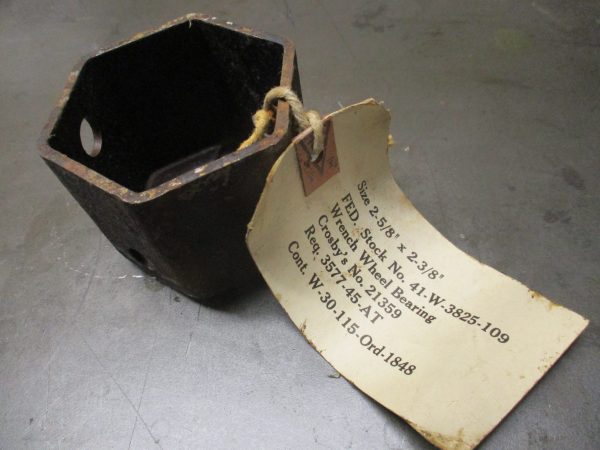 Size 2-5/8" x 2-3/8"
FED. Stock No. 41-W-3825-109
Wrench Wheel Bearing
Crosby's No. 21359
Req. 3577-45-AT
Cont. W-30-115-Ord-1848